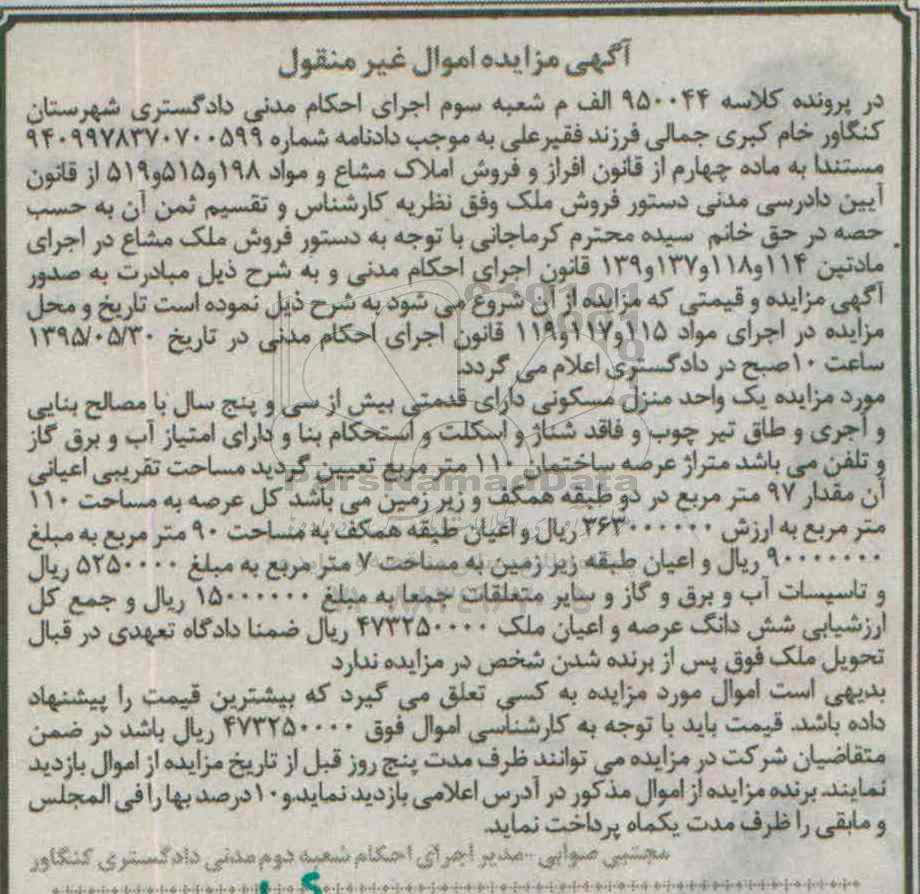 آگهی مزایده اموال غیر منقول
در پرونده کلاسه ۹۵۰۰۴۴ الف م شعبه سوم اجرای احکام مدنی دادگستری شهرستان
کنگاور خام کبری جمالی فرزند فقیرعلی به موجب دادنامه شماره ۹۴۰۹۹۷۸۳۷۰۷۰۰۵۹۹
مستندا به ماده چهارم از قانون افراز و فروش املاک مشاع و مواد ۱۹۸و۵۱۵و۵۱۹ از قانون
آیین دادرسی مدنی دستور فروش ملک وفق نظریه کارشناس و تقسیم ثمن آن به حسب
حصه در حق خانم سیده محترم کرماجانی با توجه به دستور فروش ملک مشاع در اجرای
مادتین ۱۱۴و۱۱۸و۱۳۷و۱۳۹ قانون اجرای احکام مدنی و به شرح ذیل مبادرت به صدور
آگهی مزایده و قیمتی که مزایده از آن شروع می شود به شرح ذیل نموده است تاریخ و محل
مزایده در اجرای مواد ۱۱۵و۱۱۷و۱۱۹ قانون اجرای احکام مدنی در تاریخ ۱۳۹۵/۰۵/۳۰
ساعت ۱۰صبح در دادگستری اعلام می گردد.
مورد مزایده یک واحد منزل مسکونی دارای قدمتی بیش از سی و پنج سال با مصالح بنایی
و آجری و طاق تیر چوب و فاقد شناژ و اسکلت و استحکام بنا و دارای امتیاز آب و برق گاز
و تلفن می باشد متراژ عرصه ساختمان ۱۱۰ متر مربع تعیین گردید مساحت تقریبی اعیانی
آن مقدار ۹۷ متر مربع در دو طبقه همکف و زیر زمین می باشد کل عرصه به مساحت ۱۱۰
متر مربع به ارزش ۳۶۳۰۰۰۰۰۰ ریال و اعیان طبقه همکف به مساحت ۹۰ متر مربع به مبلغ
۹۰۰۰۰۰۰۰ ریال و اعیان طبقه زیر زمین به مساحت ۷ متر مربع به مبلغ ۵۲۵۰۰۰۰ ریال
و تاسیسات آب و برق و گاز و سایر متعلقات جمعا به مبلغ ۱۵۰۰۰۰۰۰ ریال و جمع کل
ارزشیابی شش دانگ عرصه و اعیان ملک ۴۷۳۲۵۰۰۰۰ ریال ضمنا دادگاه تعهدی در قبال
تحویل ملک فوق پس از برنده شدن شخص در مزایده ندارد
بدیهی است اموال مورد مزایده به کسی تعلق می گیرد که بیشترین قیمت را پیشنهاد
داده باشد. قیمت باید با توجه به کارشناسی اموال فوق ۴۷۳۲۵۰۰۰۰ ریال باشد در ضمن
متقاضیان شرکت در مزایده می توانند ظرف مدت پنج روز قبل از تاریخ مزایده از اموال بازدید
نمایند. برنده مزایده از اموال مذکور در آدرس اعلامی بازدید نماید.و ۱۰درصد بها را فی المجلس
و مابقی را ظرف مدت یکماه پرداخت نماید.
مجتبی صوابی -مدیر اجرای احکام شعبه دوم مدنی دادگستری کنگاور
ParsNamadData